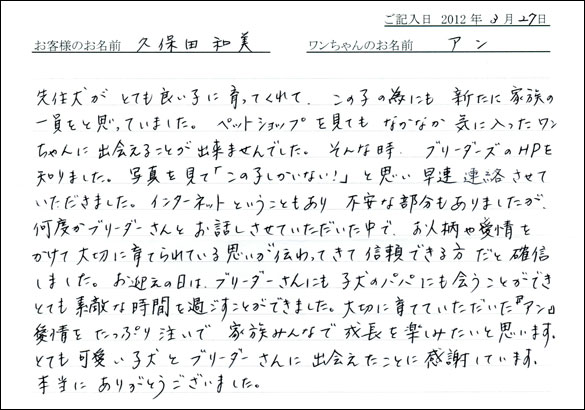 ご記入日 2012 年 3 月 27 日
お客様のお名前 久保田 和美 ワンちゃんのお名前 アン
先住犬が とても良い子に育ってくれて、この子の為にも 新たに家族の
一員をと思っていました。ペットショップを見ても なかなか 気に入ったワン
ちゃんに出会えることが出来ませんでした。そんな時、ブリーダーズのHPを
知りました。写真を見て「この子しかいない!」と思い 早速 連絡させて
いただきました。インターネットということもあり 不安な部分もありましたが、
何度かブリーダーさんとお話しさせていただいた中で、お人柄や愛情を
かけて大切に育てられている思いが伝わってきて信頼できる方だと確信
しました。お迎えの日は、ブリーダーさんにも子犬のパパにも会うことができ
とても素敵な時間を過ごすことができました。大切に育てていただいた『アン』
愛情をたっぷり注いで 家族みんなで成長を楽しみたいと思います。
とても可愛い子犬とブリーダーさんに出会えたことに感謝しています。
本当に ありがとうございました。